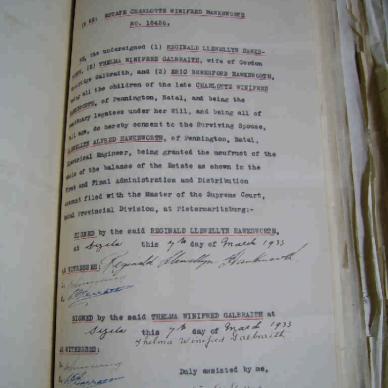 ESTATE CHARLOTTE WINIFRED HAWKSWORTH
NO. 18486.
the undersigned (1) REGINALD LLEWELLYN HAWKS-
(2) THELMA WINIFRED GALBRAITH, wife of Gordon
Galbraith, and (3) ERIC BERESFORD HAWKSWORTH,
all the children of the late CHARLOTTE WINIFRED
HAWKSWORTH, of Pennington, Natal, and being the
legatees under her Will, and being all of
age, do hereby consent to the Surviving Spouse,
LLEWELLYN ALFRED HAWKSWORTH, of Pennington, Natal,
Electrical Engineer, being granted the usufruct of the
whole of the balance of the Estate as shown in the
First and Final Administration and Distribution
Account filed with the Master of the Supreme Court,
Natal Provincial Division, at Pietermaritzburg:-
SIGNED by the said REGINALD LLEWELLYN HAWKSWORTH,
at Sezela this 7th day of March 1933
AS WITNESSES:
Reginald Llewellyn Hawksworth
SIGNED by the said THELMA WINIFRED GALBRAITH at
Sezela this 7th day of March 1933
Thelma Winifred Galbraith
AS WITNESSES:
Duly assisted by me,